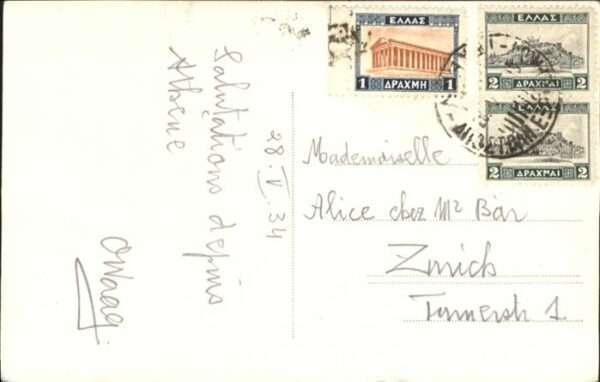 Salutations depuis
Athene
28.V.34
Mademoiselle
Alice chez Mr Bär
Zürich
1
ΕΛΛΑΣ
1 ΔΡΑΧΜΗ 1
ΕΛΛΑΣ
2 ΔΡΑΧΜΑΙ 2
2 ΔΡΑΧΜΑΙ 2